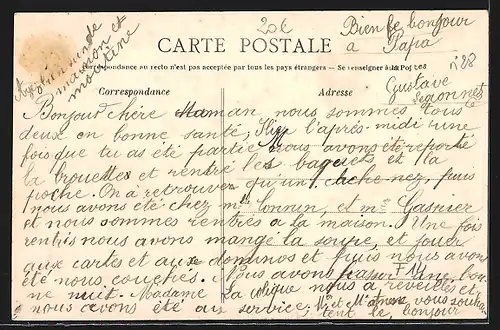 20€
Bien le bonjour
à Papa
n°28
maman et
CARTE POSTALE
Correspondance au recto n'est pas acceptée par tous les pays étrangers — Se renseigner à la Poste
Correspondance
Adresse
Gustave
Bonjour chère Maman, nous sommes tous
deux en bonne santé, Hier l'après-midi une
fois que tu as été partie nous avons été reporté
la brouette et rentré les baquets et la
poche. On a retrouvé qu'un cache-nez, puis
nous avons été chez me et mr Gasnier
et nous sommes rentrés à la maison. Une fois
rentrés nous avons mangé la soupe, et joué
aux cartes et aux dominos et puis nous avons
été nous coucher. Nous avons passer une bon-
ne nuit. Madame nous a réveillés et
nous avons été au service, Mr et Me vous souhai-
tent le bonjour